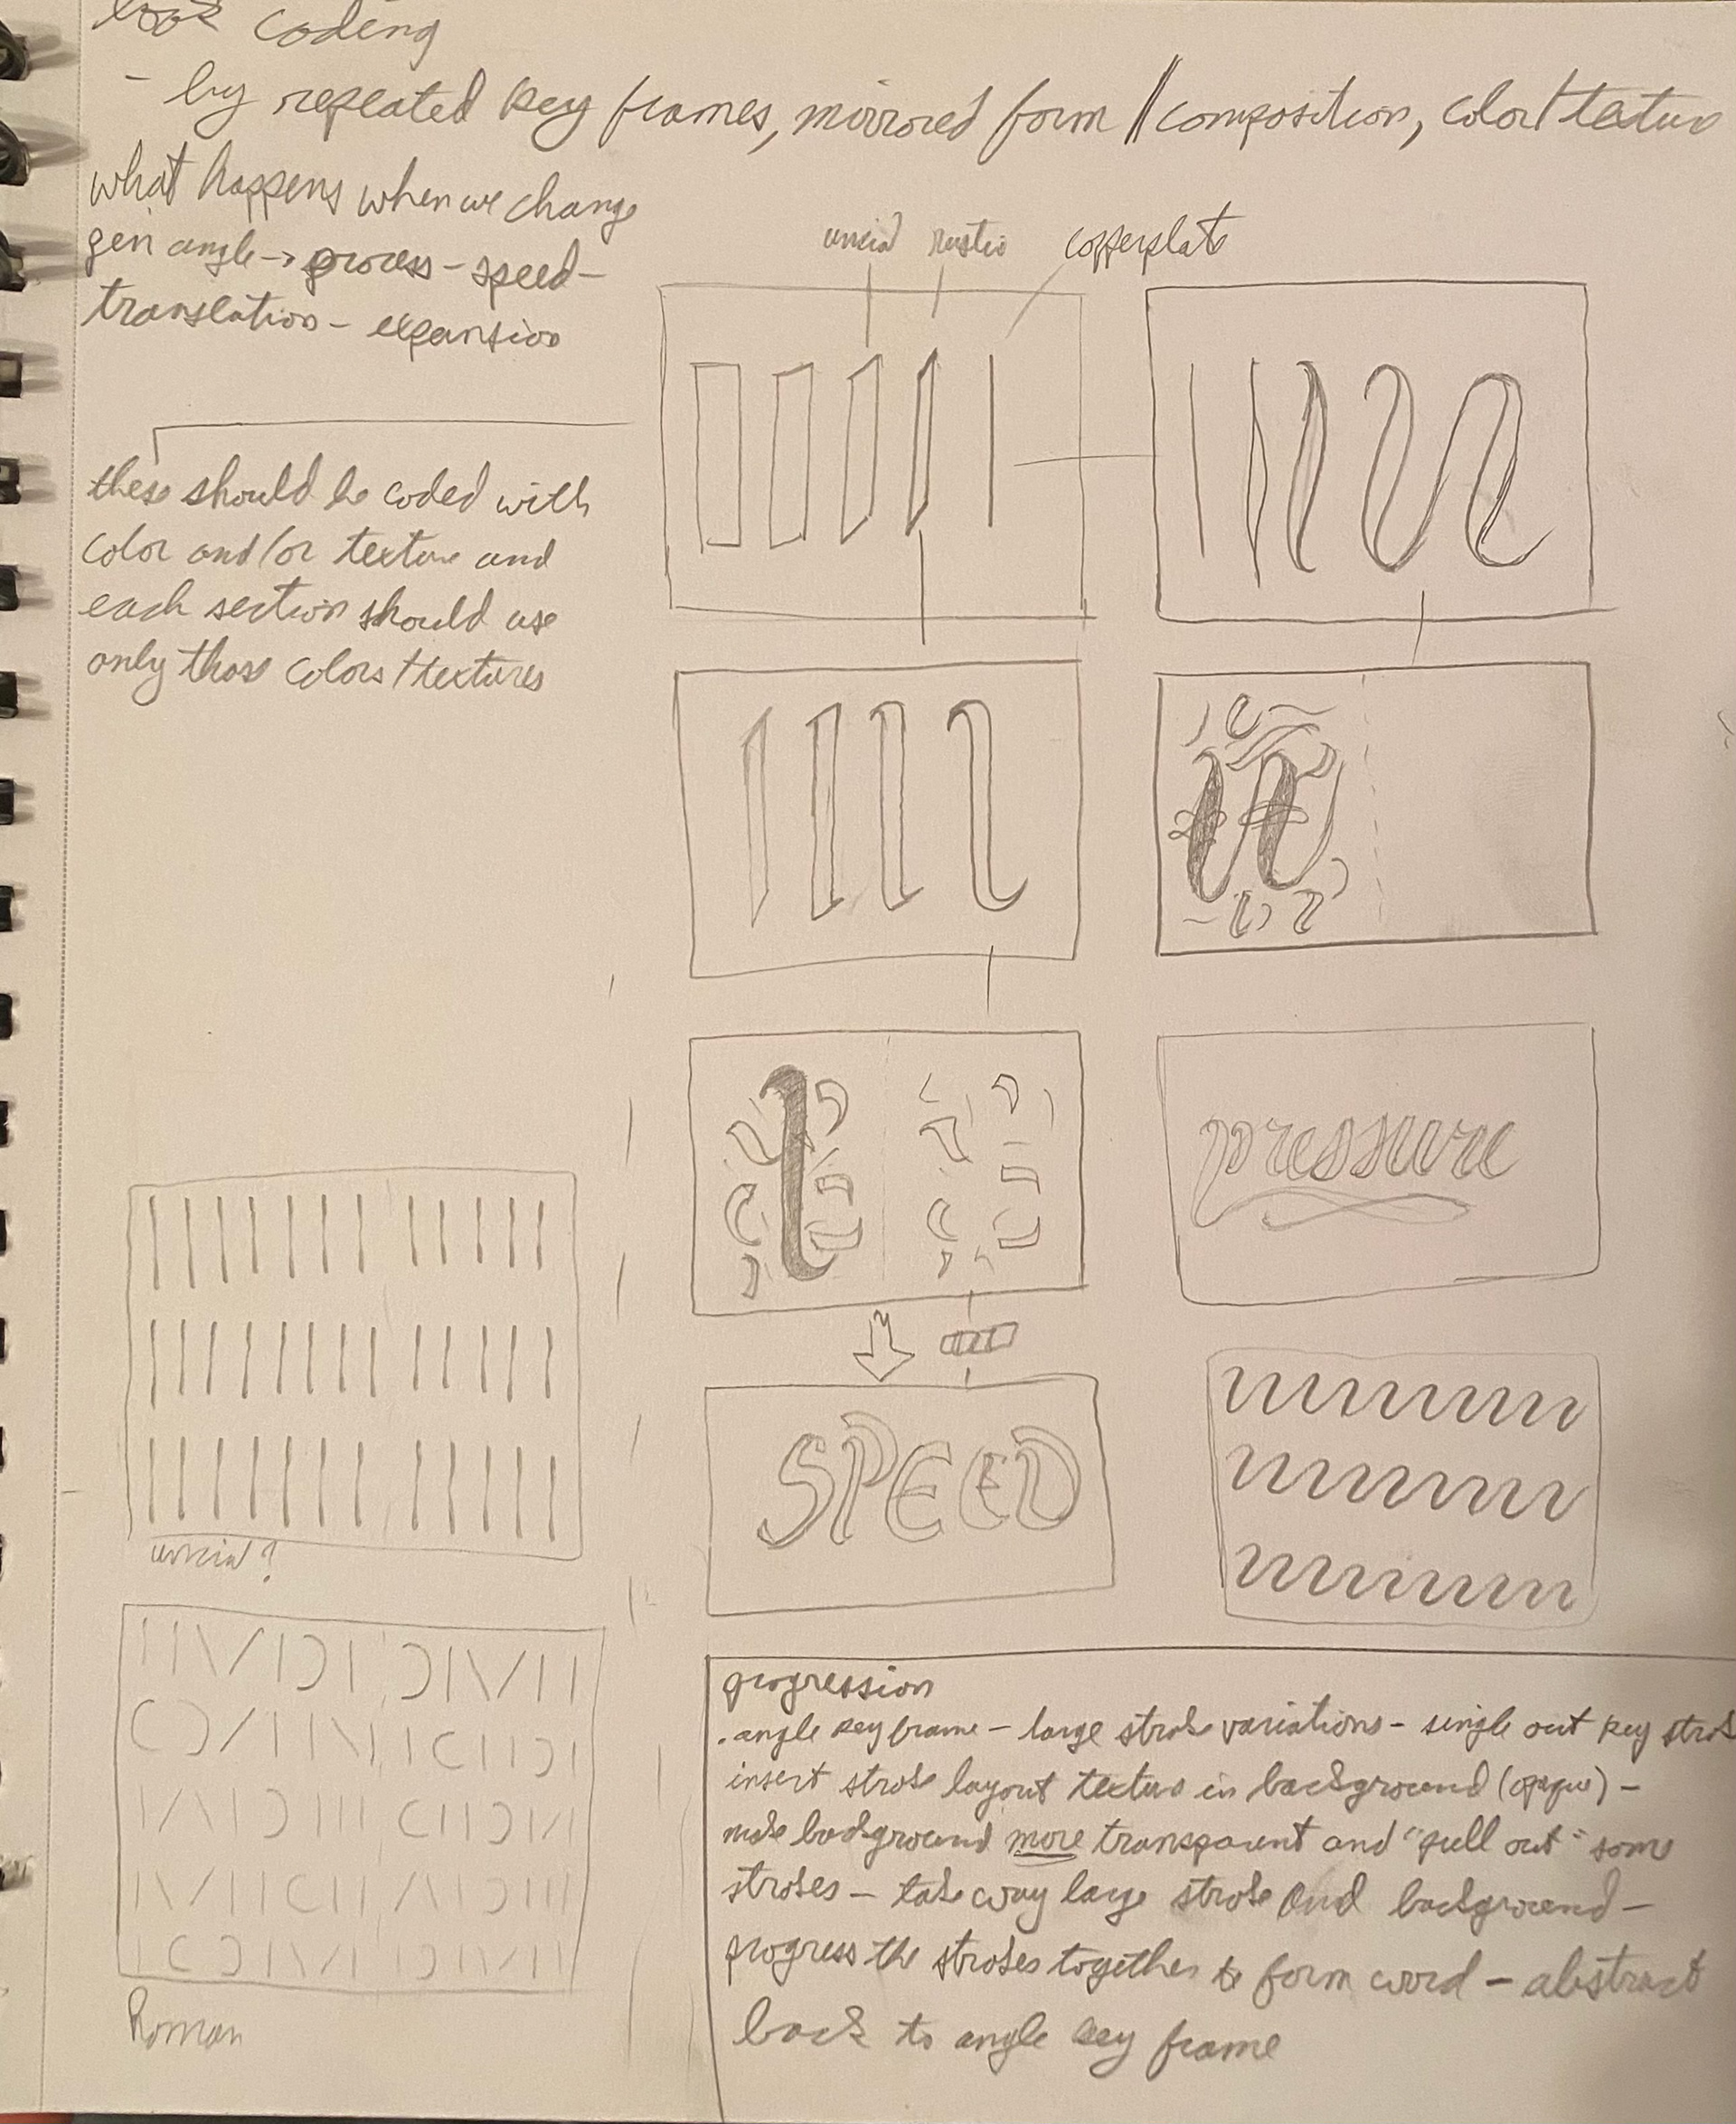 coding
- by repeated key frames, mirrored form // composition, color/textur
what happens when we change
pen angle → process - speed -
translation - expansion
uncial rustic copperplate
these should be coded with
color and/or texture and
each section should use
only those colors/textures
pressure
SPEED
uncial?
Roman
progression
. angle key frame - large stroke variations - single out key strok
insert stroke layout texture in background (opaque) -
make background more transparent and "pull out" some
strokes - take away large stroke and background -
progress the strokes together to form word - abstract
back to angle key frame